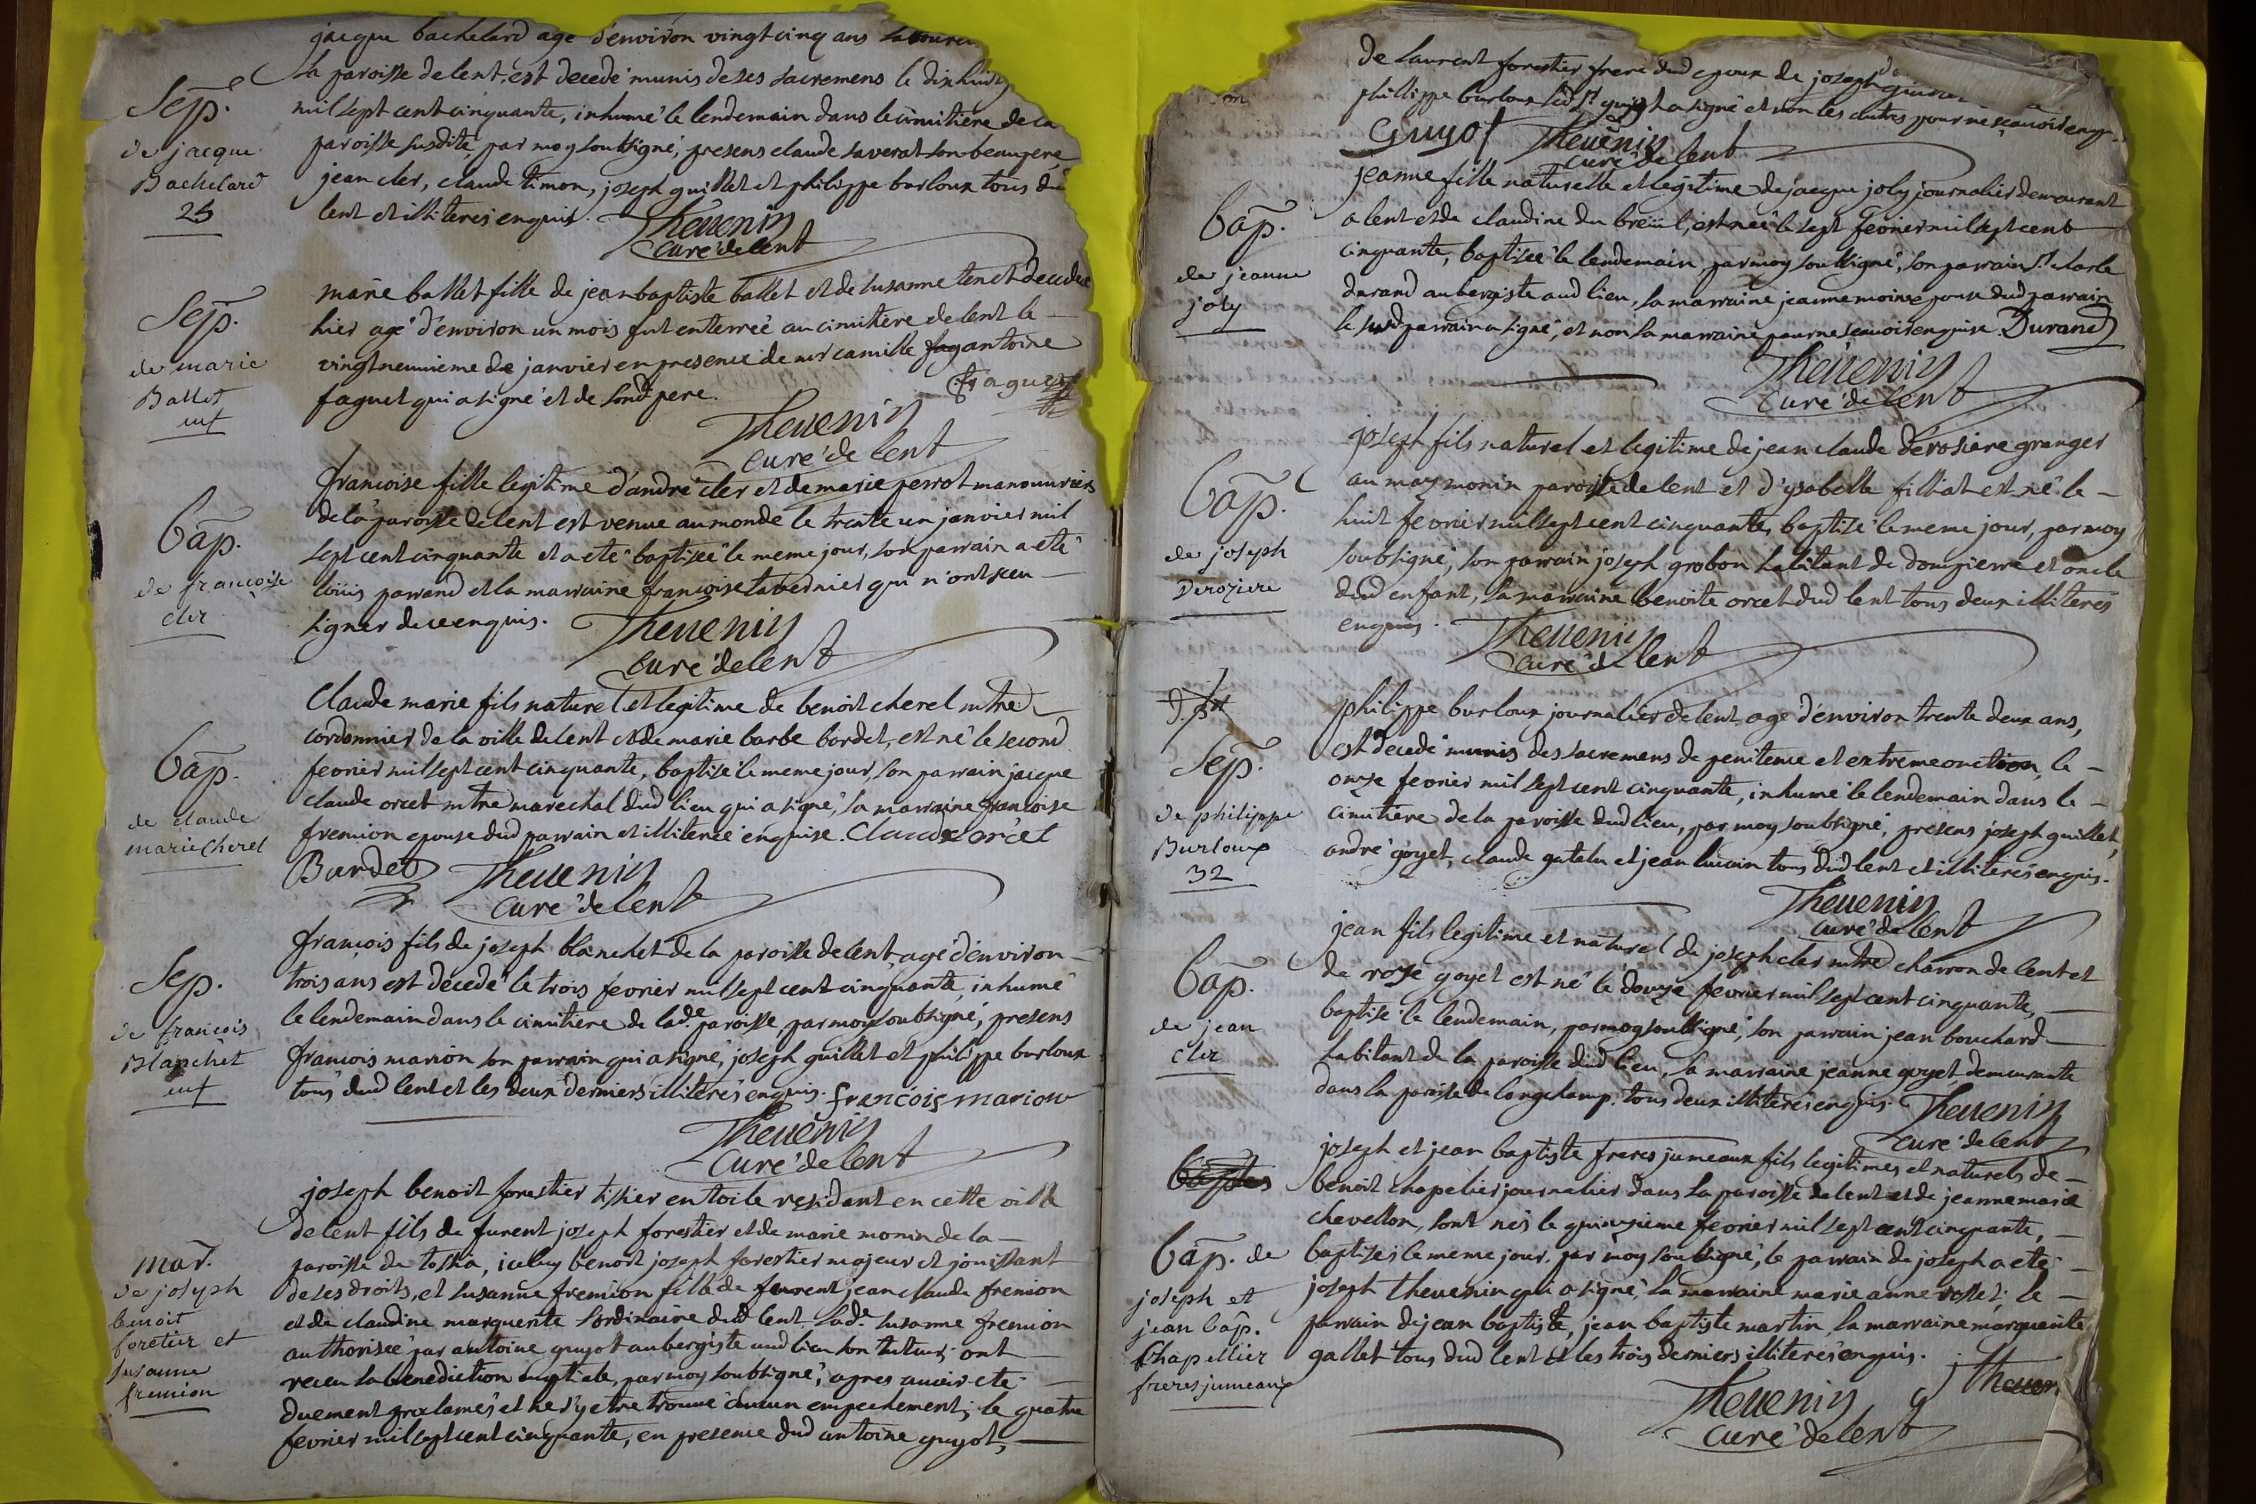 jacque bachelard age d'environ vingt cinq ans
la paroisse de lent, est decedé munis de ses sacremens le dix huit
Sep.
de jacque
Bachelard
25
mil sept cent cinquante, inhumé le lendemain dans le cimitière de la
paroisse susditte, par moy soubsigné, presens claude saverat son beaupere
jean cler, claude timon, joseph guillet et philippe burloux tous du
lent et illiteres enquis.
Thevenin
curé de lent
Sep.
de marie
Ballet
enf
marie ballet fille de jean baptiste ballet et de susanne tenet decedee
hier age d'environ un mois fut enterrée au cimitière de lent le
vingt neuvieme de janvier en presence de mr camille fag antoine
faguet qui a signé et de sond pere.
faguet
Thevenin
curé de lent
Bap.
de francoise
cler
francoise fille legitime d'andré cler et de marie perrot manouvriers
de la paroisse de lent est venue au monde le trente un janvier mil
sept cent cinquante et a eté baptisée le meme jour, son parrain a eté
loüis parrend et la marraine francoise tabernier qui n'ont sceu
signer de ce enquis.
Thevenin
curé de lent
Bap.
de claude
marie Cherel
Claude marie fils naturel et legitime de benoit cherel mtre
cordonnier de la ville de lent et de marie barbe bordet, est né le second
fevrier mil sept cent cinquante, baptisé le meme jour, son parrain jacque
claude orcet mtre marechal dud lieu qui a signé, la marraine francoise
fremion epouse dud parrain et illiterée enquise. Claude orcet
Bardet
Thevenin
curé de lent
Sep.
de francois
Blanchet
enf
françois fils de joseph blanchet de la paroisse de lent, agé d'environ
trois ans est decedé le trois fevrier mil sept cent cinquante, inhumé
le lendemain dans le cimitiere de lade paroisse, par moy soubsigné, presens
françois marion son parrain qui a signé, joseph guillet et philippe burloux
tous dud lent et les deux derniers illiterés enquis. francois marion
Thevenin
curé de lent
mar.
de joseph
benoit
foretier et
susanne
fremion
joseph benoit forestier tissier en toile residant en cette ville
de lent fils de furent joseph forestier et de marie monin de la
paroisse de tossia, iceluy benoit joseph forestier majeur et jouissant
de ses droits, et susanne fremion fille de furent jean claude fremion
et de claudine marguerite sordinaire dud lent. lade susanne fremion
authorisée par antoine guyot aubergiste aud lieu son tuteur; ont
receu la benediction nuptiale, par moy soubsigné, apres avoir eté
duement proclamés et ne s'y etre trouvé aucun empechement, le quatre
fevrier mil sept cent cinquante, en presence dud antoine guyot,
de laurent forestier frere dud epoux de joseph
philippe burloux led sr guyot a signé et non les autres pour ne sçavoir enqu
Guyot Thevenin
curé de lent
Bap.
de jeanne
joly
jeanne fille naturelle et legitime de jacque joly journalier demeurant
a lent et de claudine du breüil, est née le sept fevrier mil sept cent
cinquante, baptisée le lendemain, par moy soubsigné, son parrain sr charle
durand aubergiste aud lieu, la marraine jeanne moine epouse dud parrain
le susd parrain a signé, et non la marraine pour ne scavoir enquise. Durand
Thevenin
curé de lent
Bap.
de joseph
Deroziere
joseph fils naturel et legitime de jean claude derosiere granger
au may monin paroisse de lent et d'ysabelle filliat est né le
huit fevrier mil sept cent cinquante, baptisé le meme jour, par moy
soubsigné, son parrain joseph grobon habitant de dompierre et oncle
dud enfant, la marraine benoite orcet dud lent tous deux illiterés
enquis.
Thevenin
curé de lent
Sep.
de philippe
Burloux
32
philippe burloux journalier de lent, age d'environ trente deux ans,
est decedé munis des sacremens de penitence et extremeonction, le
onze fevrier mil sept cent cinquante, inhumé le lendemain dans le
cimitiere de la paroisse dud lieu, par moy soubsigné, presens joseph guillet,
andré goyet, claude gatelu et jean lucain tous dud lent et illiterés enquis.
Thevenin
curé de lent
Bap.
de jean
cler
jean fils legitime et naturel de joseph cler mtre charron de lent et
de roze goyet est né le douze fevrier mil sept cent cinquante,
baptisé le lendemain, par moy soubsigné, son parrain jean bouchard
habitant de la paroisse dud lieu, la marraine jeanne goyet demeurante
dans la paroisse de longchamp. tous deux illiterés enquis. Thevenin
curé de lent
Bap. de
joseph et
jean bap.
Chapellier
freres jumeaux
joseph et jean baptiste freres jumeaux fils legitimes et naturels de
benoit chapelier journalier dans la paroisse de lent et de jeanne marie
chevellon, sont nés le quinzieme fevrier mil sept cent cinquante,
baptisés le meme jour. par moy soubsigné, le parrain de joseph a eté
joseph thevenin qui a signé, la marraine marie anne rosset; le
parrain de jean baptiste, jean baptiste martin, la marraine marguerite
gallet tous dud lent et les trois derniers illiterés enquis.
j theven
Thevenin
curé de lent